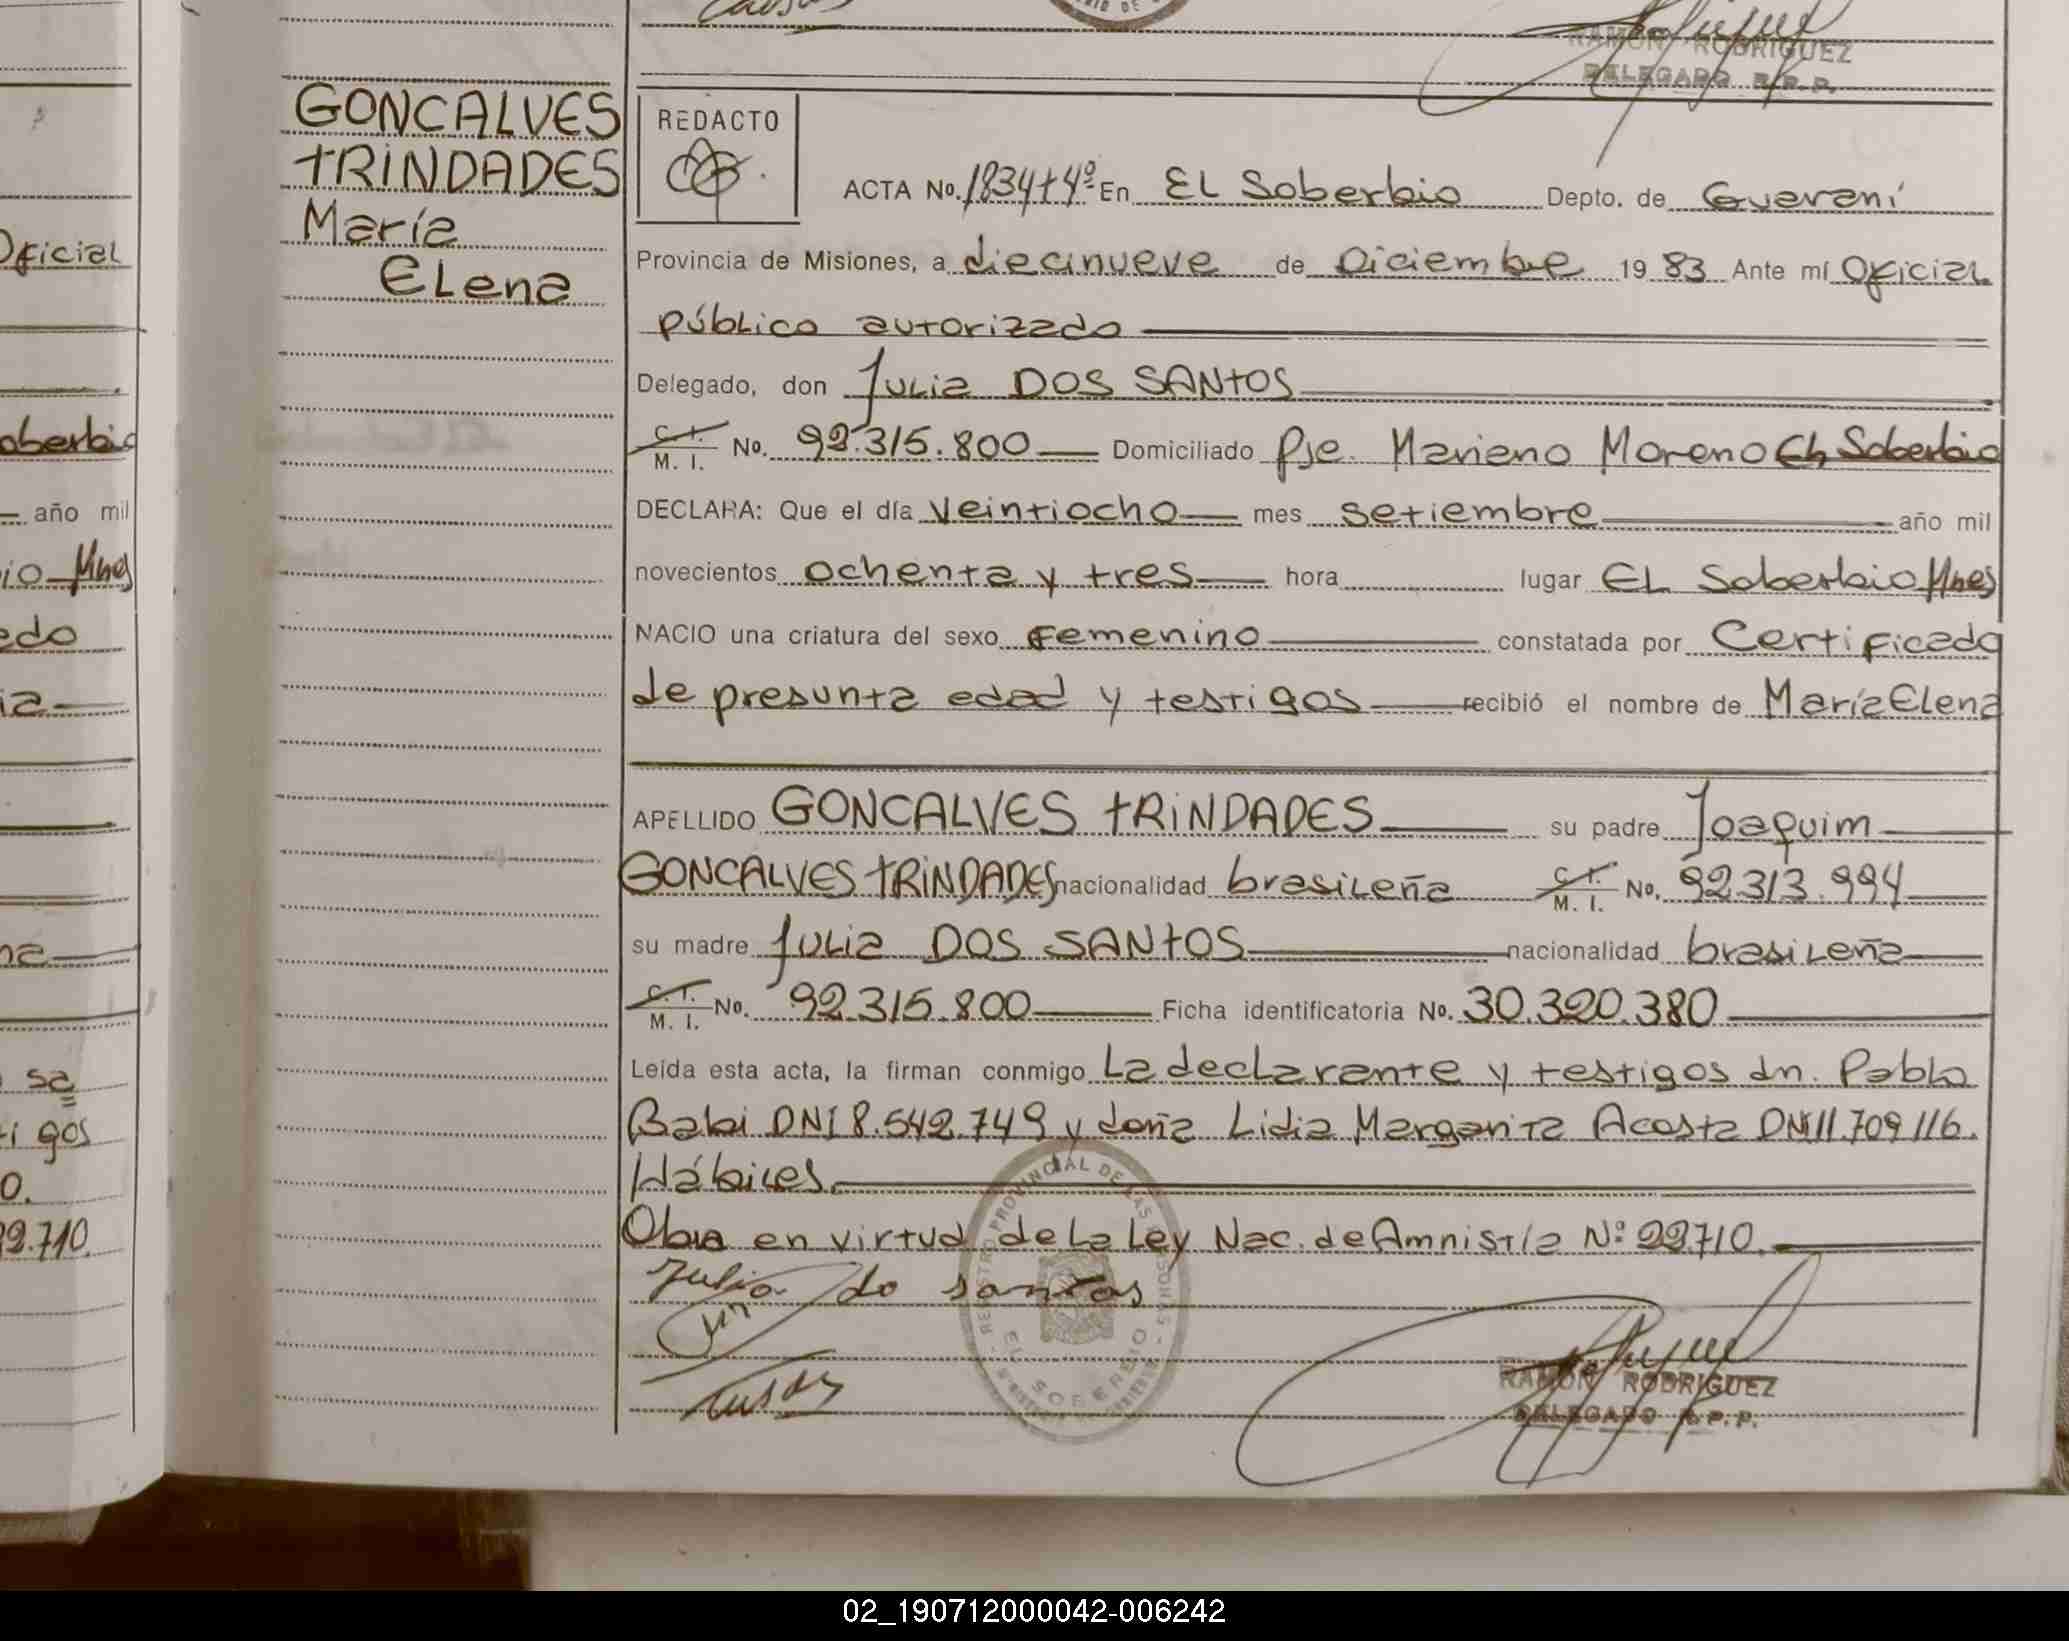 RAMON RODRIGUEZ
DELEGADO R.P.P.
Oficial
oberbio
año mil
io Mnes
edo
ia
na
sa
ti gos
0.
22.710.
GONCALVES
TRINDADES
María
Elena
REDACTO
ACTA No. 1834 T 4º En EL Soberbio Depto. de Guaraní
Provincia de Misiones, a diecinueve de Diciembre 19 83 Ante mí Oficial
público autorizado
Delegado, don Julia DOS SANTOS
C. I. M. I. No. 92.315.800 Domiciliado Pje. Mariano Moreno EL Soberbio
DECLARA: Que el día Veintiocho mes setiembre año mil
novecientos ochenta y tres hora lugar EL Soberbio Mnes
NACIO una criatura del sexo Femenino constatada por Certificado
de presunta edad y testigos recibió el nombre de María Elena
APELLIDO GONCALVES TRINDADES su padre Joaquim
GONCALVES TRINDADES nacionalidad brasileña C. I. M. I. No. 92.313.994
su madre Julia DOS SANTOS nacionalidad brasileña
C. I. M. I. No. 92.315.800 Ficha identificatoria No. 30.320.380
Leída esta acta, la firman conmigo La declarante y testigos dn. Pablo
Babi DNI 8.542.749 y doña Lidia Margarita Acosta DNI 11.709.116.
Hábiles.
Obra en virtud de La Ley Nac. de Amnistía Nº 22.710.
Julia do santos
REGISTRO PROVINCIAL DE LAS PERSONAS
EL SOBERBIO
RAMON RODRIGUEZ
DELEGADO R.P.P.
02_190712000042-006242